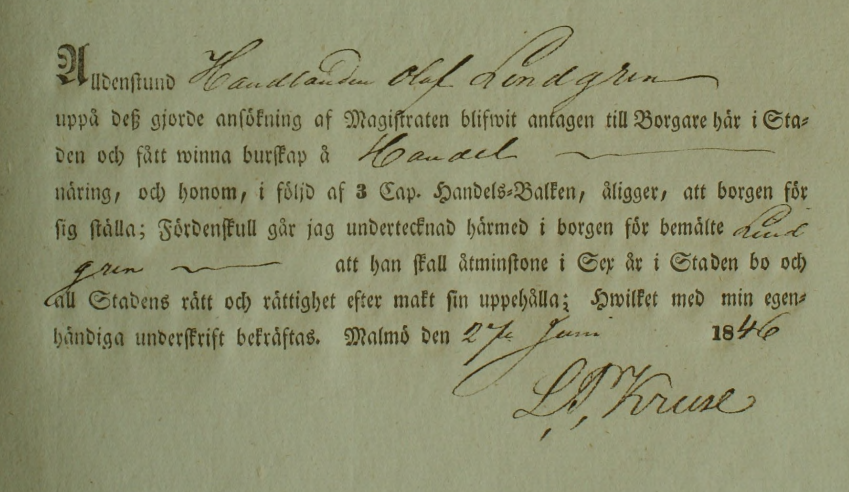 Alldenstund Handlanden Olof Lindgren
uppå deß gjorde ansökning af Magistraten blifwit antagen till Borgare här i Sta-
den och fått winna burskap å Handel
näring, och honom, i följd af 3 Cap. Handels-Balken, åligger, att borgen för
sig ställa; Fördenskull går jag undertecknad härmed i borgen för bemälte Lind
gren att han skall åtminstone i Sex år i Staden bo och
all Stadens rätt och rättighet efter makt sin uppehålla; Hwilket med min egen-
händiga underskrift bekräftas. Malmö den 27e Juni 1846
Kruse